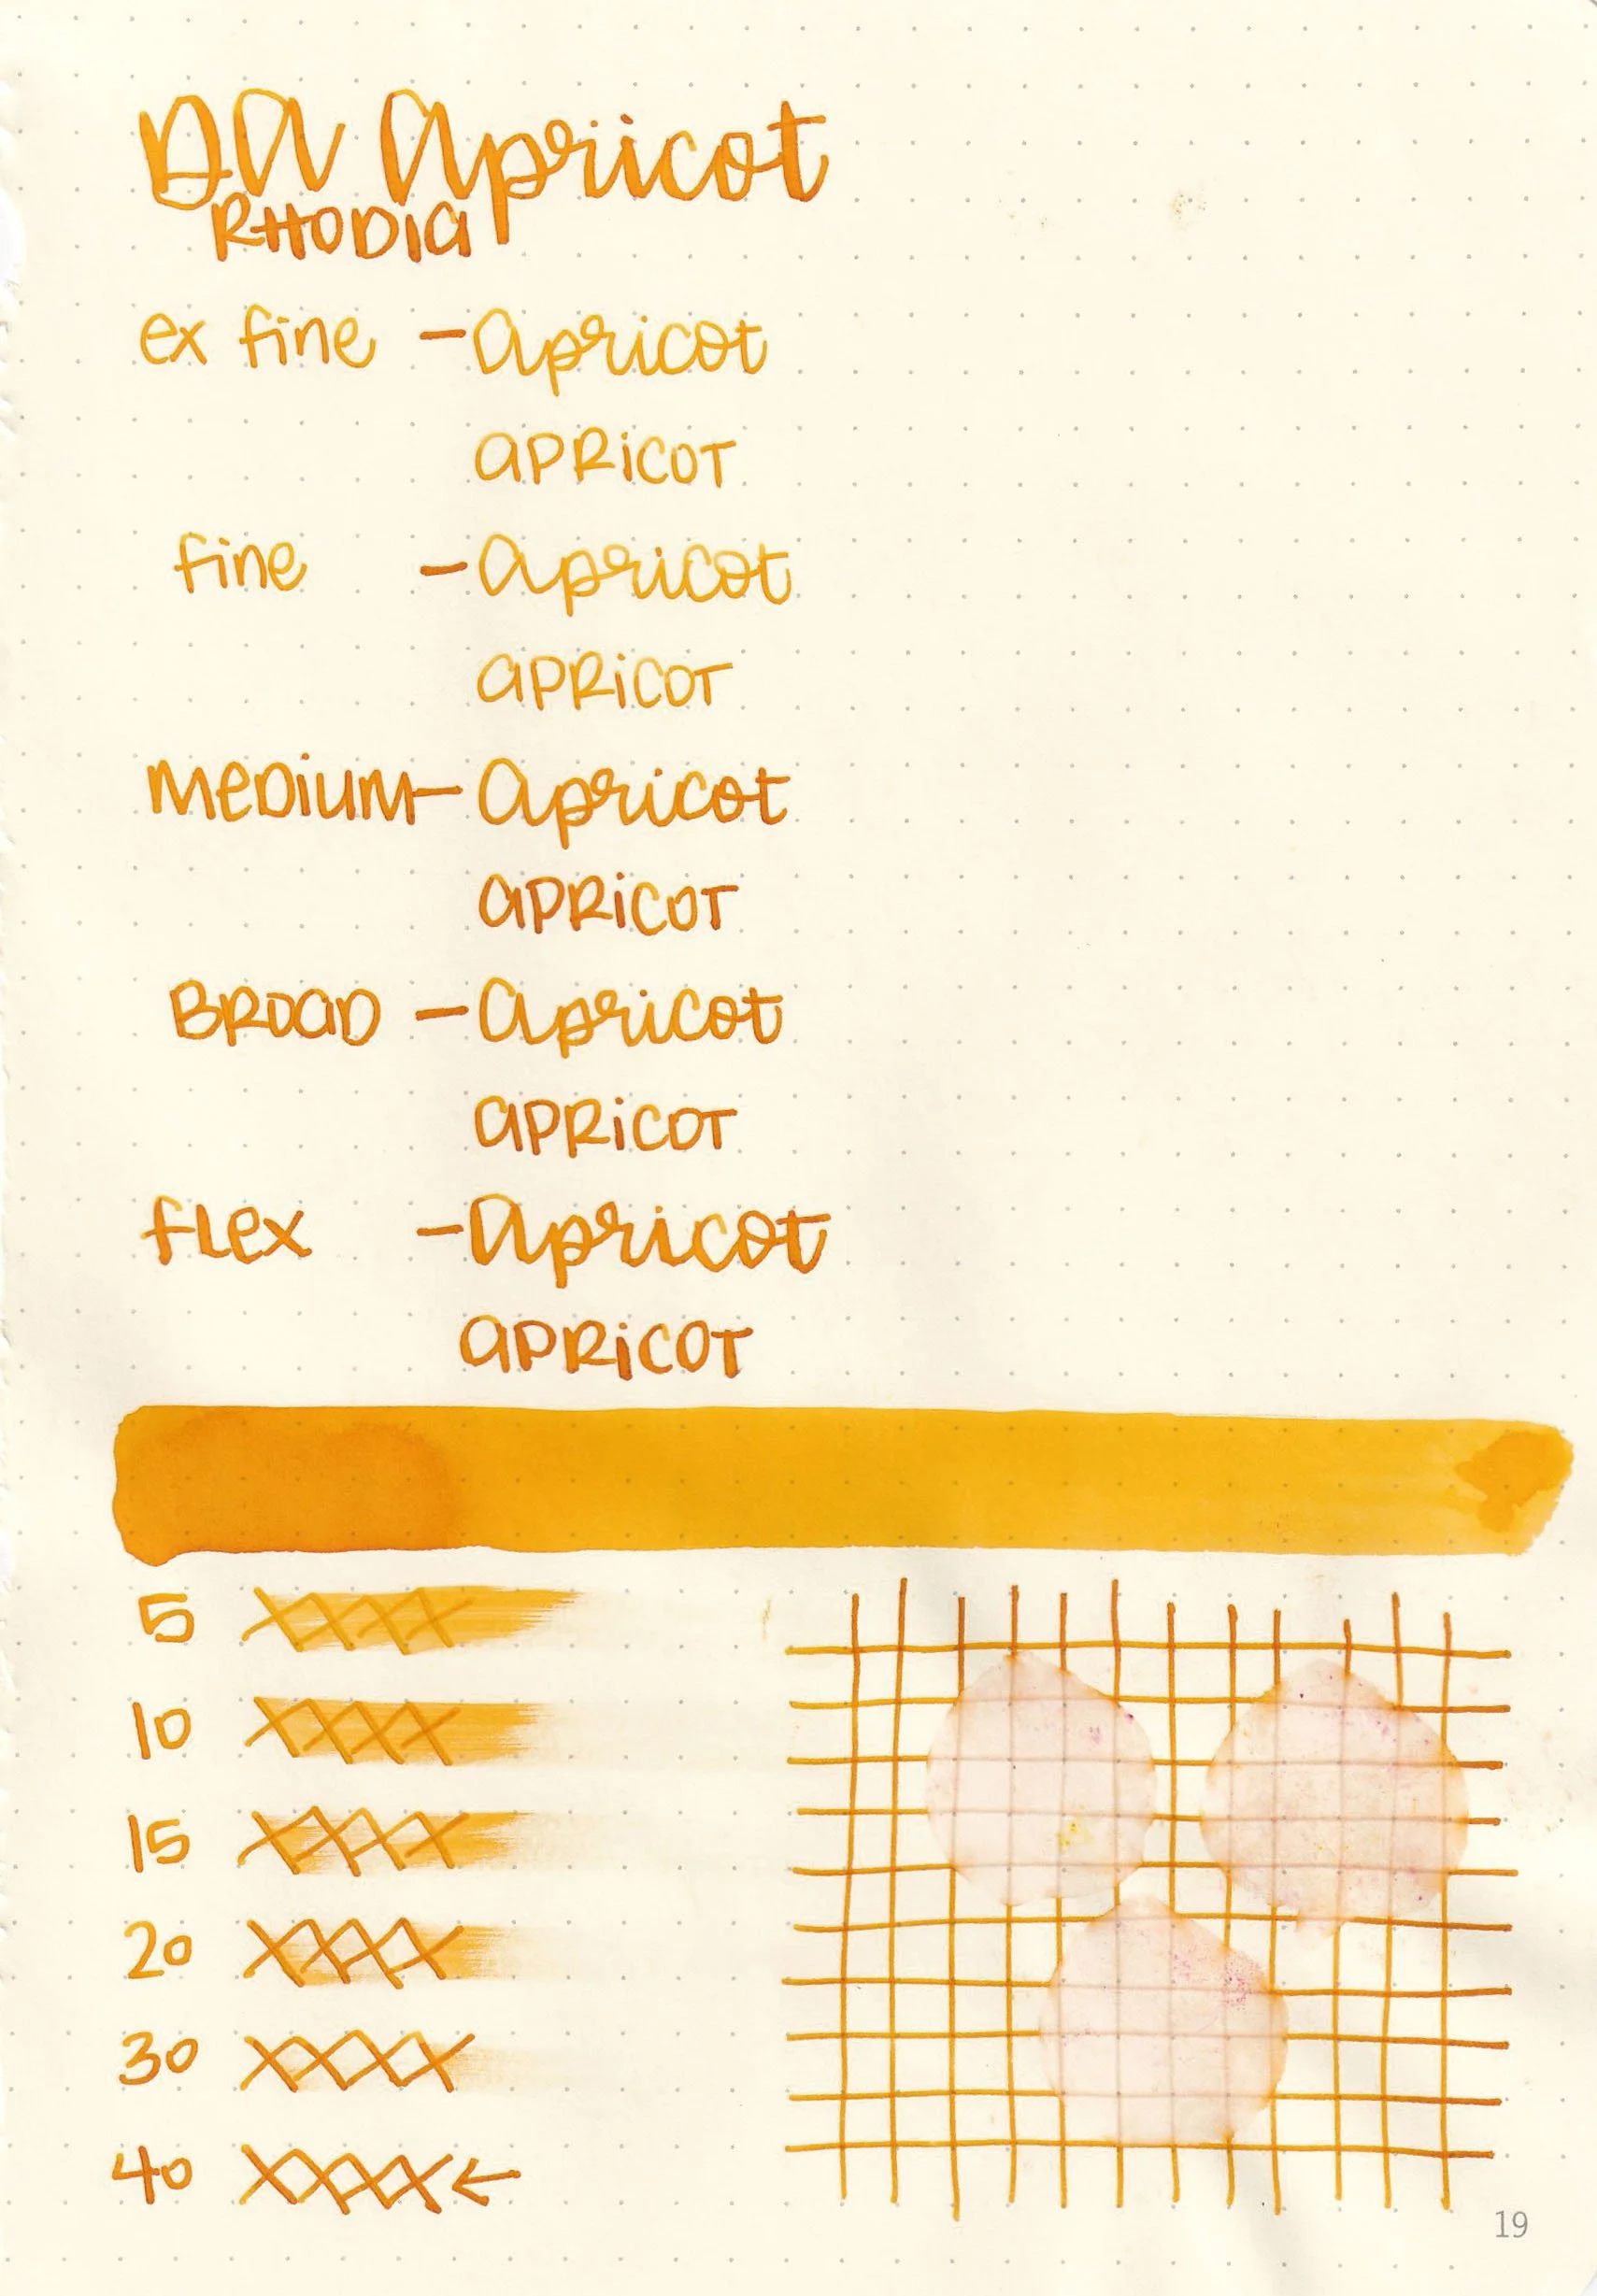 DA Apricot
RHODIA
ex fine - Apricot
APRiCOT
fine - Apricot
APRiCOT
MeDiUM - Apricot
APRiCOT
BROAD - Apricot
APRiCOT
fLex - Apricot
APRiCOT
5 XXXX
10 XXXX
15 XXXX
20 XXXX
30 XXXX
40 XXXX ←
19